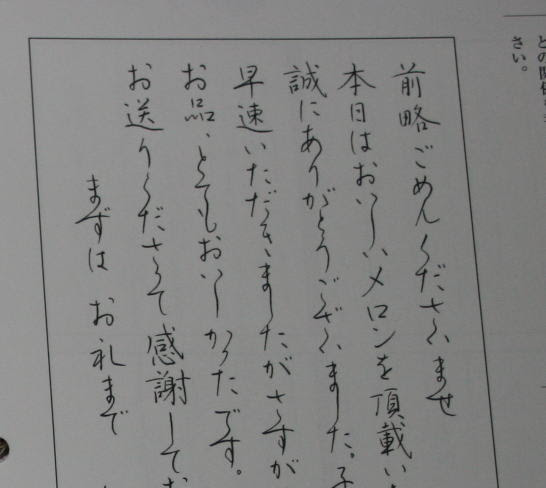 との関係
さい。
前略ごめんくださいませ
本日はおいしいメロンを頂載い
誠にありがとうございました。子
早速いただきましたがさすが
お品、とてもおいしかったです。
お送りくださって感謝してお
まずは お礼まで